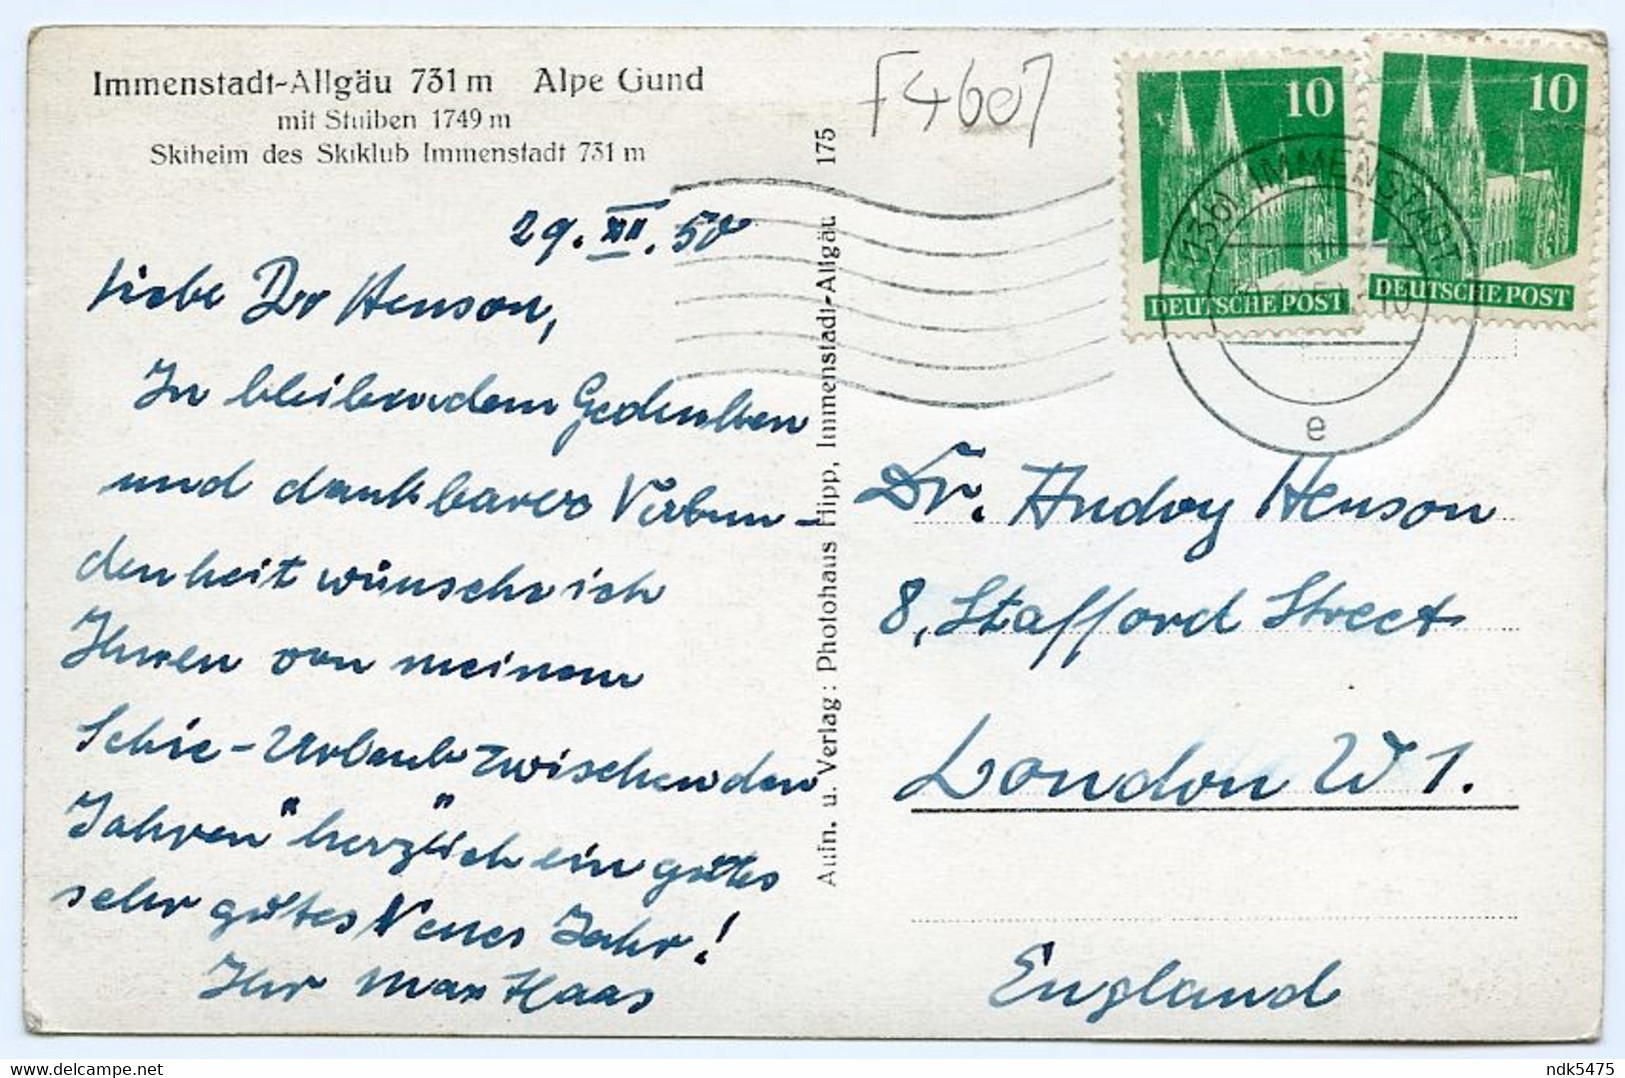 Immenstadt-Allgäu 731 m Alpe Gund
mit Stuiben 1749 m
Skiheim des Skiklub Immenstadt 731 m
F4607
29. XII. 50
Liebe Dr Henson,
In bleibendem Gedenken
und dankbarer Verbun-
denheit wünsche ich
Ihnen von meinem
Schie-Urlaub "zwischen den
Jahren" herzlich ein gutes
sehr gutes Neues Jahr!
Ihr Max Haas
Aufn. u. Verlag: Photohaus Hipp, Immenstadt-Allgäu 175
10
DEUTSCHE POST
10
DEUTSCHE POST
(13b) IMMENSTADT
e
Dr. Audry Henson
8, Stafford Street
London W 1.
England
delcampe.net
ndk5475